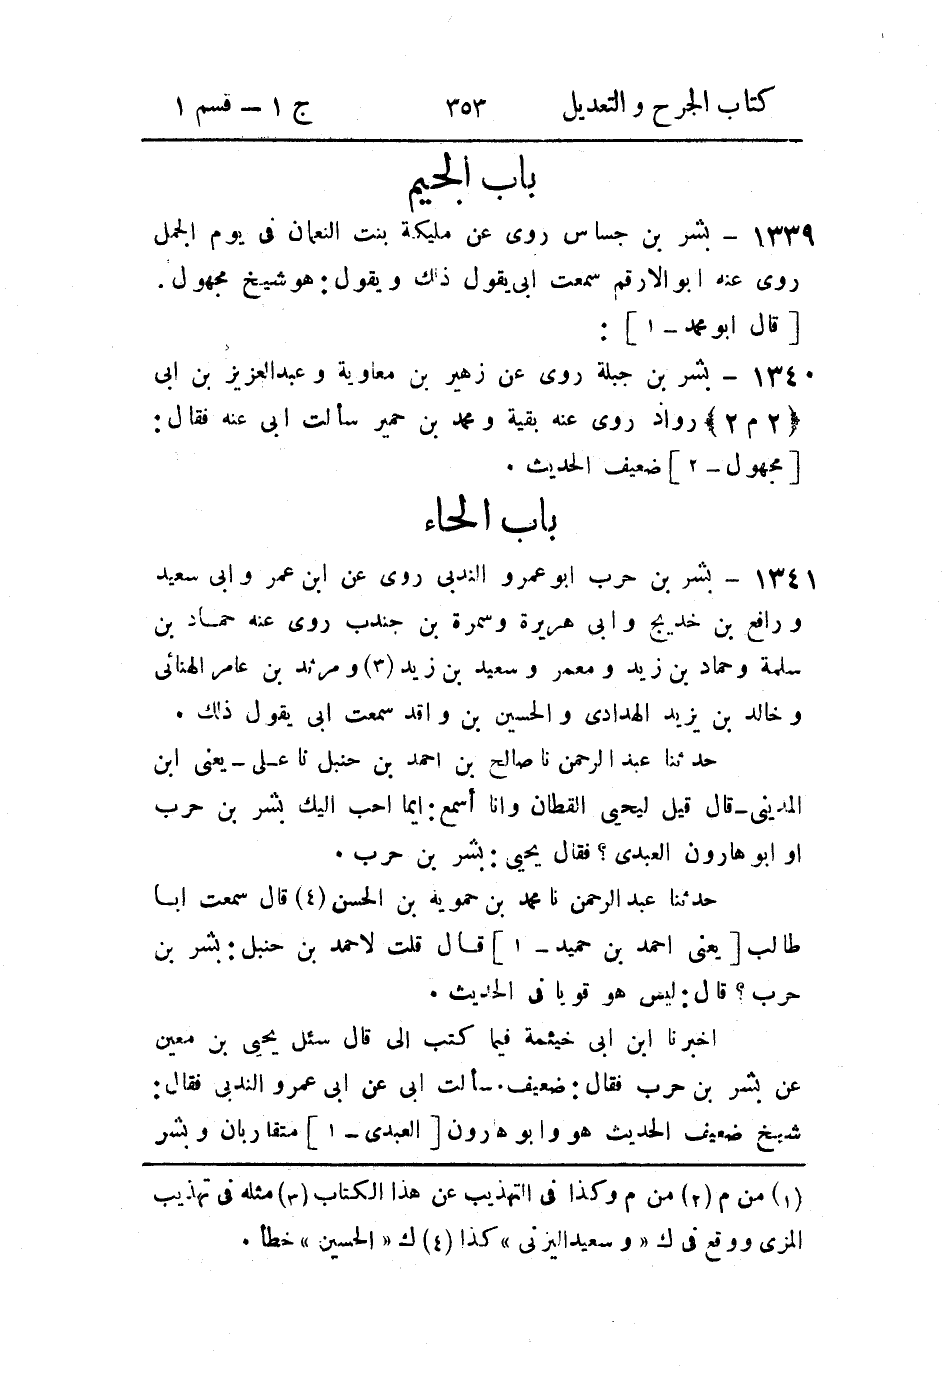 كتاب الجرح والتعديل ٣٥٣ ج ١ – قسم ١
باب الجيم
١٣٣٩ – بشر بن جساس روى عن مليكة بنت النعمان فى يوم الجمل
روى عنه ابو الارقم سمعت ابى يقول ذلك ويقول: هو شيخ مجهول.
[قال ابو محمد – ١]:
١٣٤٠ – بشر بن جبلة روى عن زهير بن معاوية وعبد العزيز بن ابى
﴿٢ م ٢﴾ رواد روى عنه بقية ومحمد بن حمير سألت ابى عنه فقال:
[مجهول – ٢] ضعيف الحديث.
باب الحاء
١٣٤١ – بشر بن حرب ابو عمرو الندبى روى عن ابن عمر وابى سعيد
ورافع بن خديج وابى هريرة وسمرة بن جندب روى عنه حماد بن
سلمة وحماد بن زيد ومعمر وسعيد بن زيد (٣) ومرثد بن عامر الهنائى
وخالد بن يزيد الهدادى والحسين بن واقد سمعت ابى يقول ذلك.
حدثنا عبد الرحمن نا صالح بن احمد بن حنبل نا على – يعنى ابن
المدينى – قال قيل ليحيى القطان وانا أسمع: ايما احب اليك بشر بن حرب
او ابو هارون العبدى؟ فقال يحيى: بشر بن حرب.
حدثنا عبد الرحمن نا محمد بن حمويه بن الحسن (٤) قال سمعت ابا
طالب [يعنى احمد بن حميد – ١] قال قلت لاحمد بن حنبل: بشر بن
حرب؟ قال: ليس هو قويا فى الحديث.
اخبرنا ابن ابى خيثمة فيما كتب الى قال سئل يحيى بن معين
عن بشر بن حرب فقال: ضعيف. سألت ابى عن ابى عمرو الندبى فقال:
شيخ ضعيف الحديث هو وابو هارون [العبدى – ١] متقاربان وبشر
(١) من م (٢) من م وكذا فى التهذيب عن هذا الكتاب (٣) مثله فى تهذيب
المزى ووقع فى ك «وسعيد اليزنى» كذا (٤) ك «الحسين» خطأ.